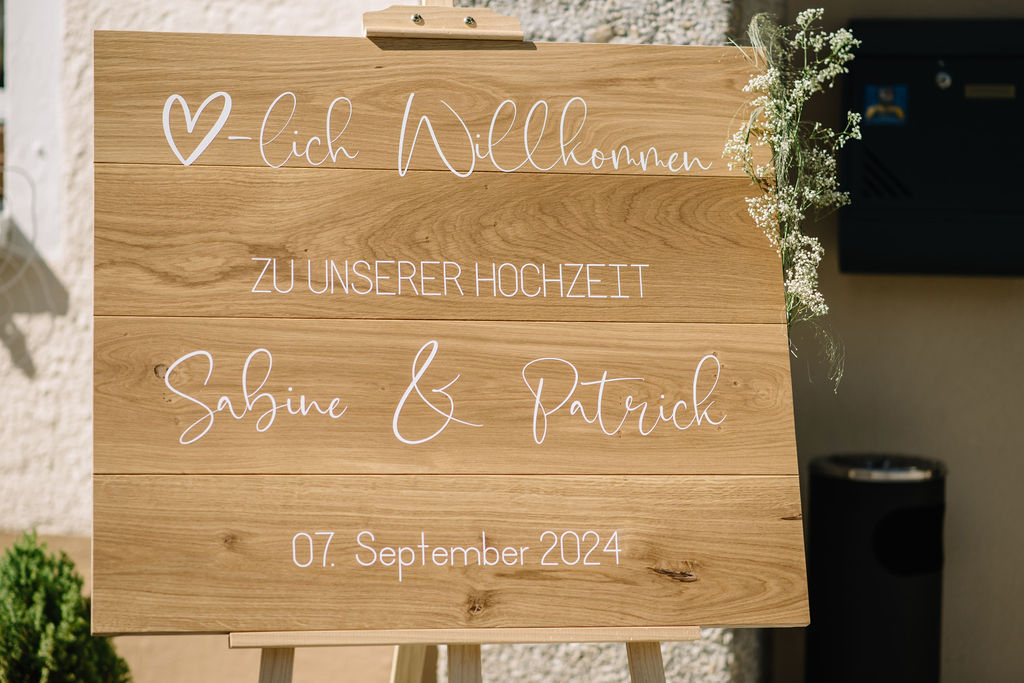 ♡-lich Willkommen
ZU UNSERER HOCHZEIT
Sabine & Patrick
07. September 2024